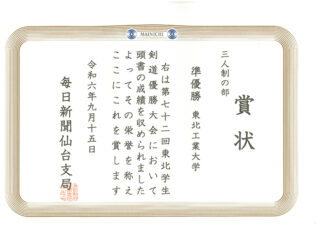 MAINICHI
賞状
三人制の部
準優勝 東北工業大学
右は第七十二回東北学生
剣道優勝大会において
頭書の成績を収められました
よってその栄誉を称え
ここにこれを賞します
令和六年九月十五日
毎日新聞仙台支局